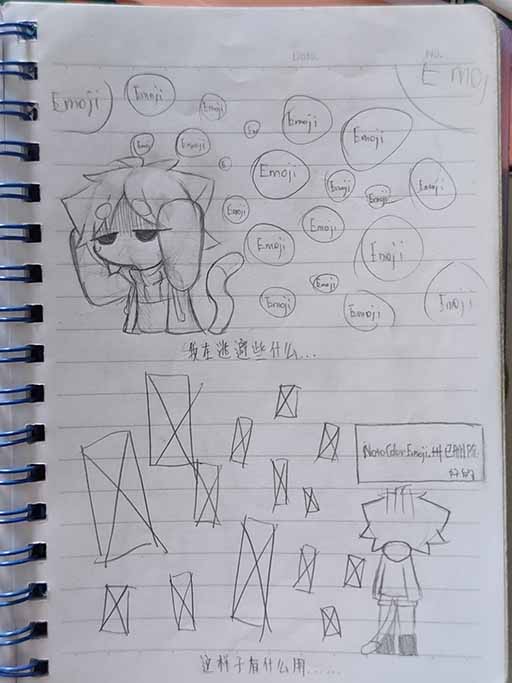 Date.
No.
Emoji
Emoji
Emoji
Emoji
Emoji
Emoji
Emoji
Emoji
Emoji
Emoji
Emoji
Emoji
Emoji
Emoji
Emoji
Emoji
Emoji
Emoji
Emoji
Emoji
我在逃避些什么...
NotoColorEmoji.ttf已删除
好的
这样子有什么用......